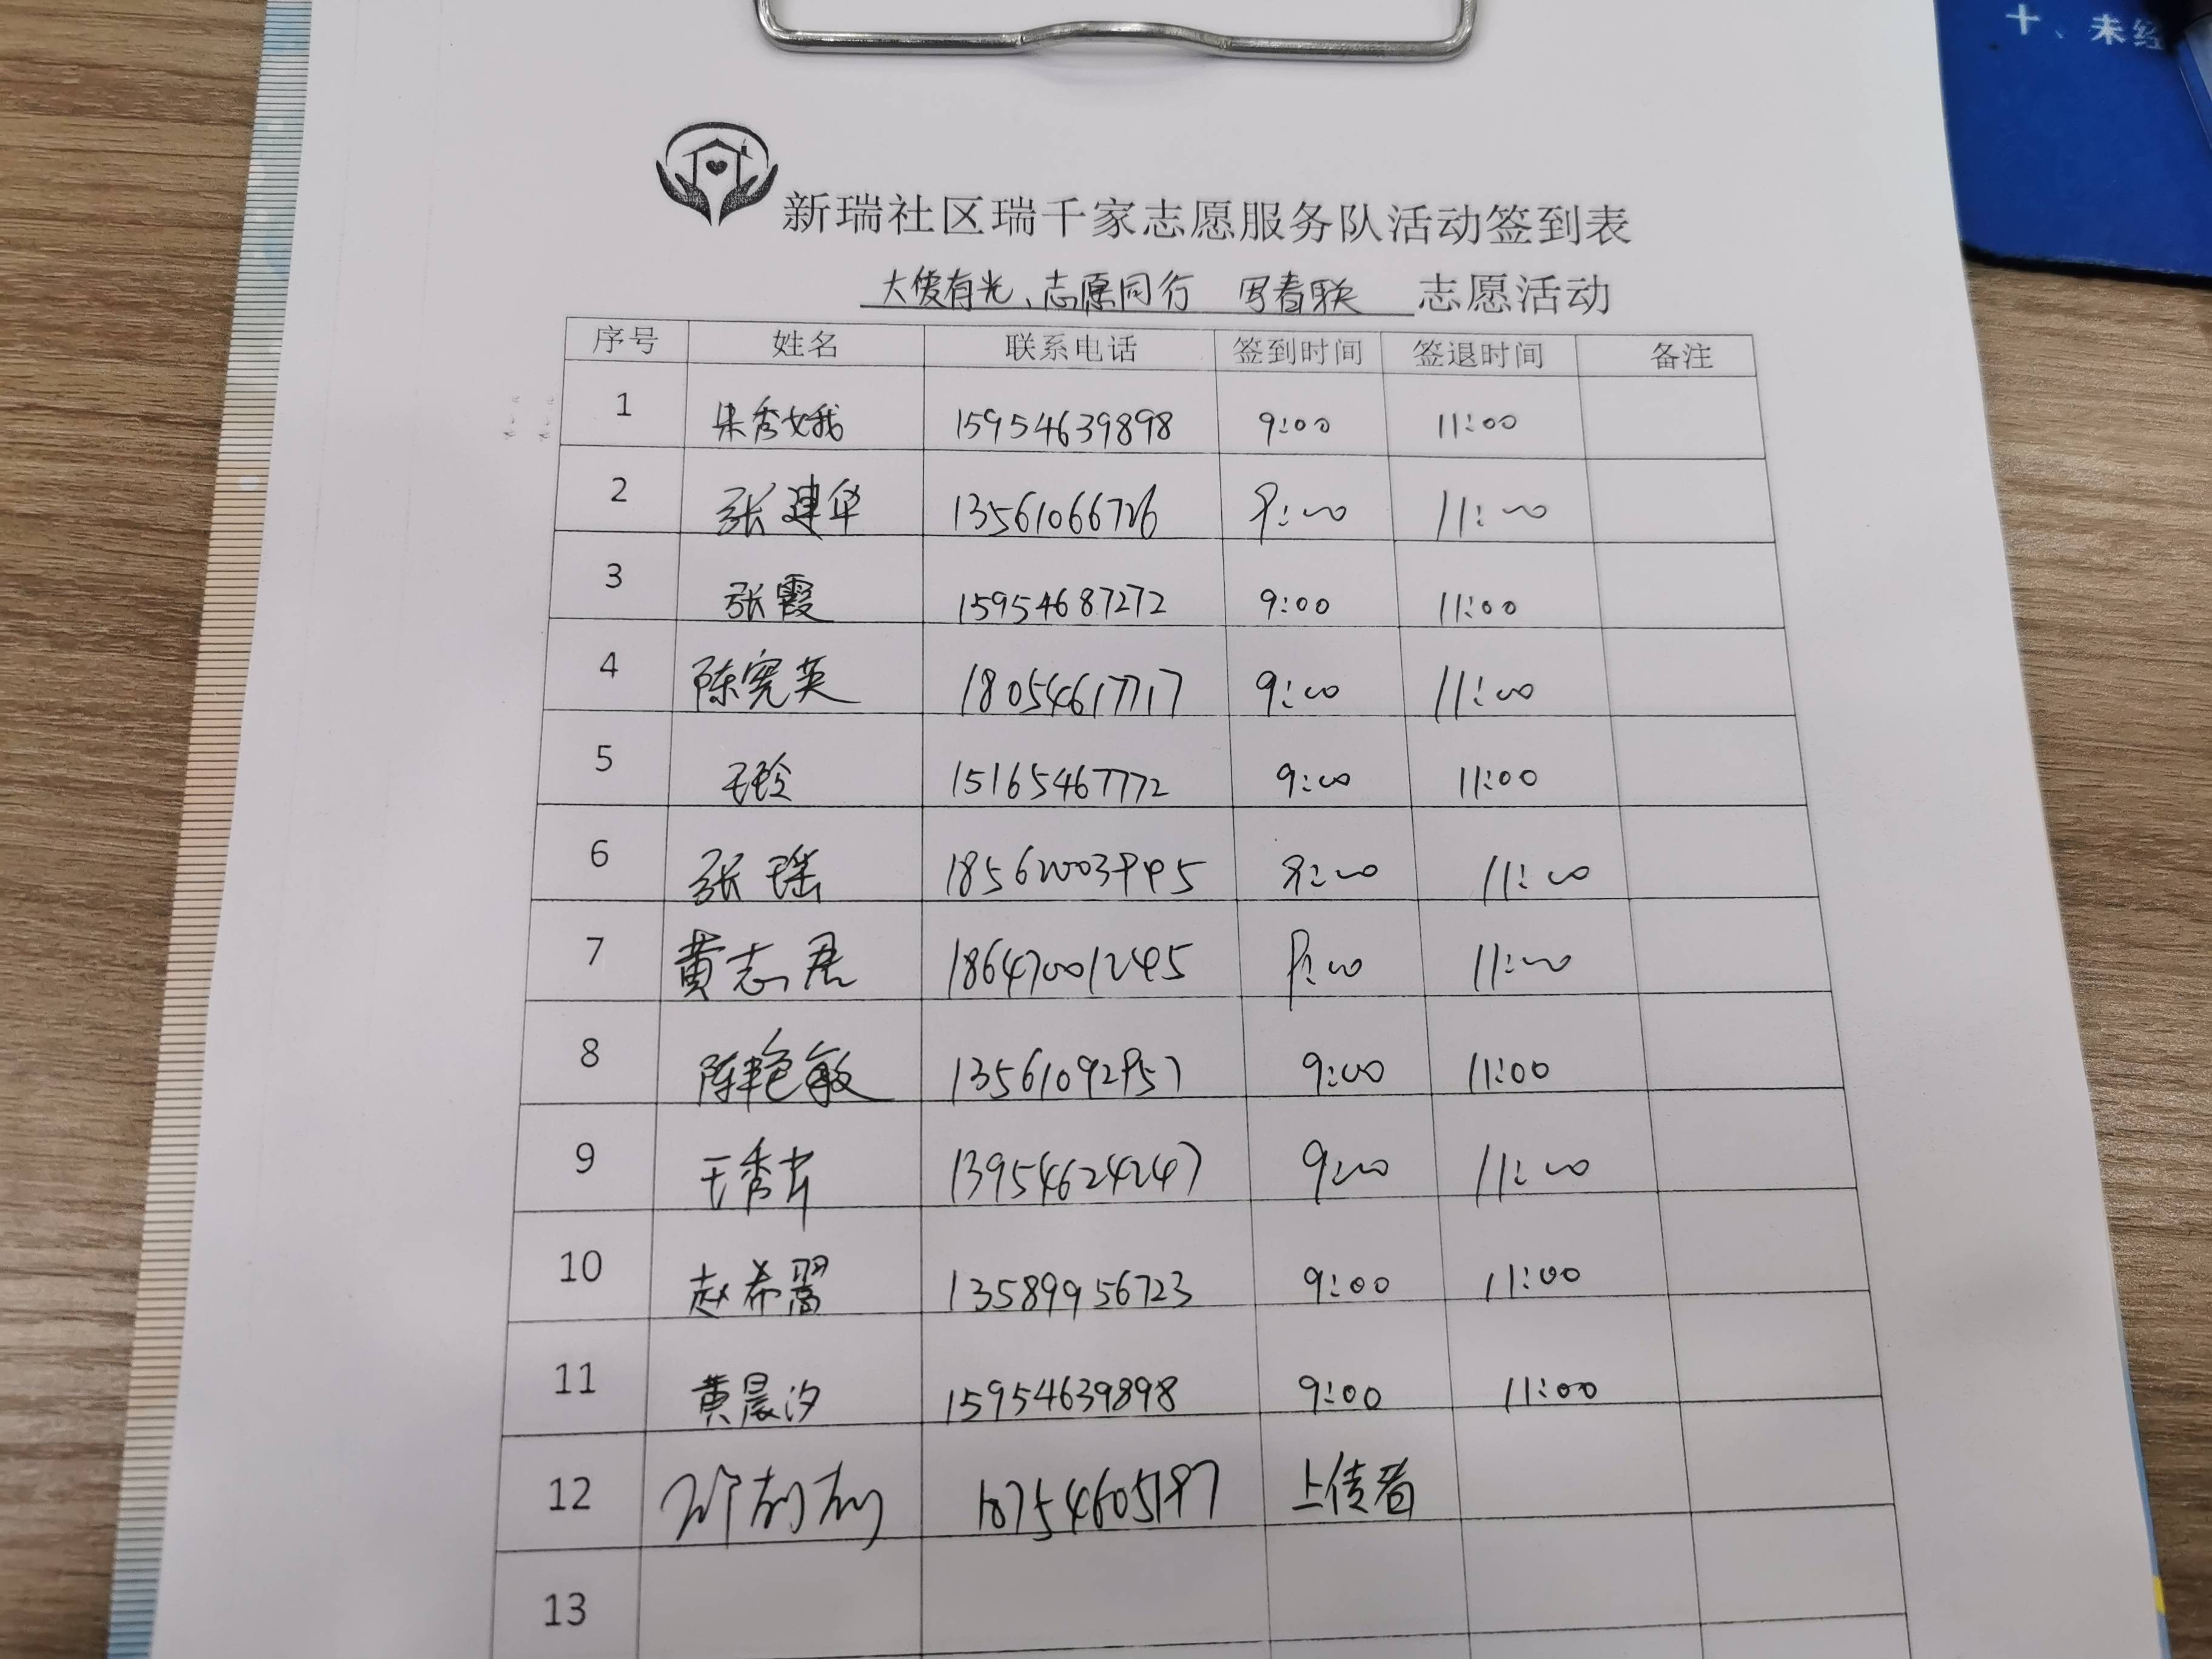 十、未经
新瑞社区瑞千家志愿服务队活动签到表
大傻有光、志愿同行 写春联 志愿活动
序号 姓名 联系电话 签到时间 签退时间 备注
1 朱秀娥 15954639898 9:00 11:00
2 张建华 13561066726 9:00 11:00
3 张霞 15954687272 9:00 11:00
4 陈宪英 18054617717 9:00 11:00
5 王玲 15165467772 9:00 11:00
6 张瑶 18562003995 9:00 11:00
7 黄志君 18647001245 9:00 11:00
8 陈艳敏 13561092957 9:00 11:00
9 王秀芹 13954624247 9:00 11:00
10 赵希翯 13589956723 9:00 11:00
11 黄晨汐 15954639898 9:00 11:00
12 上传者
13